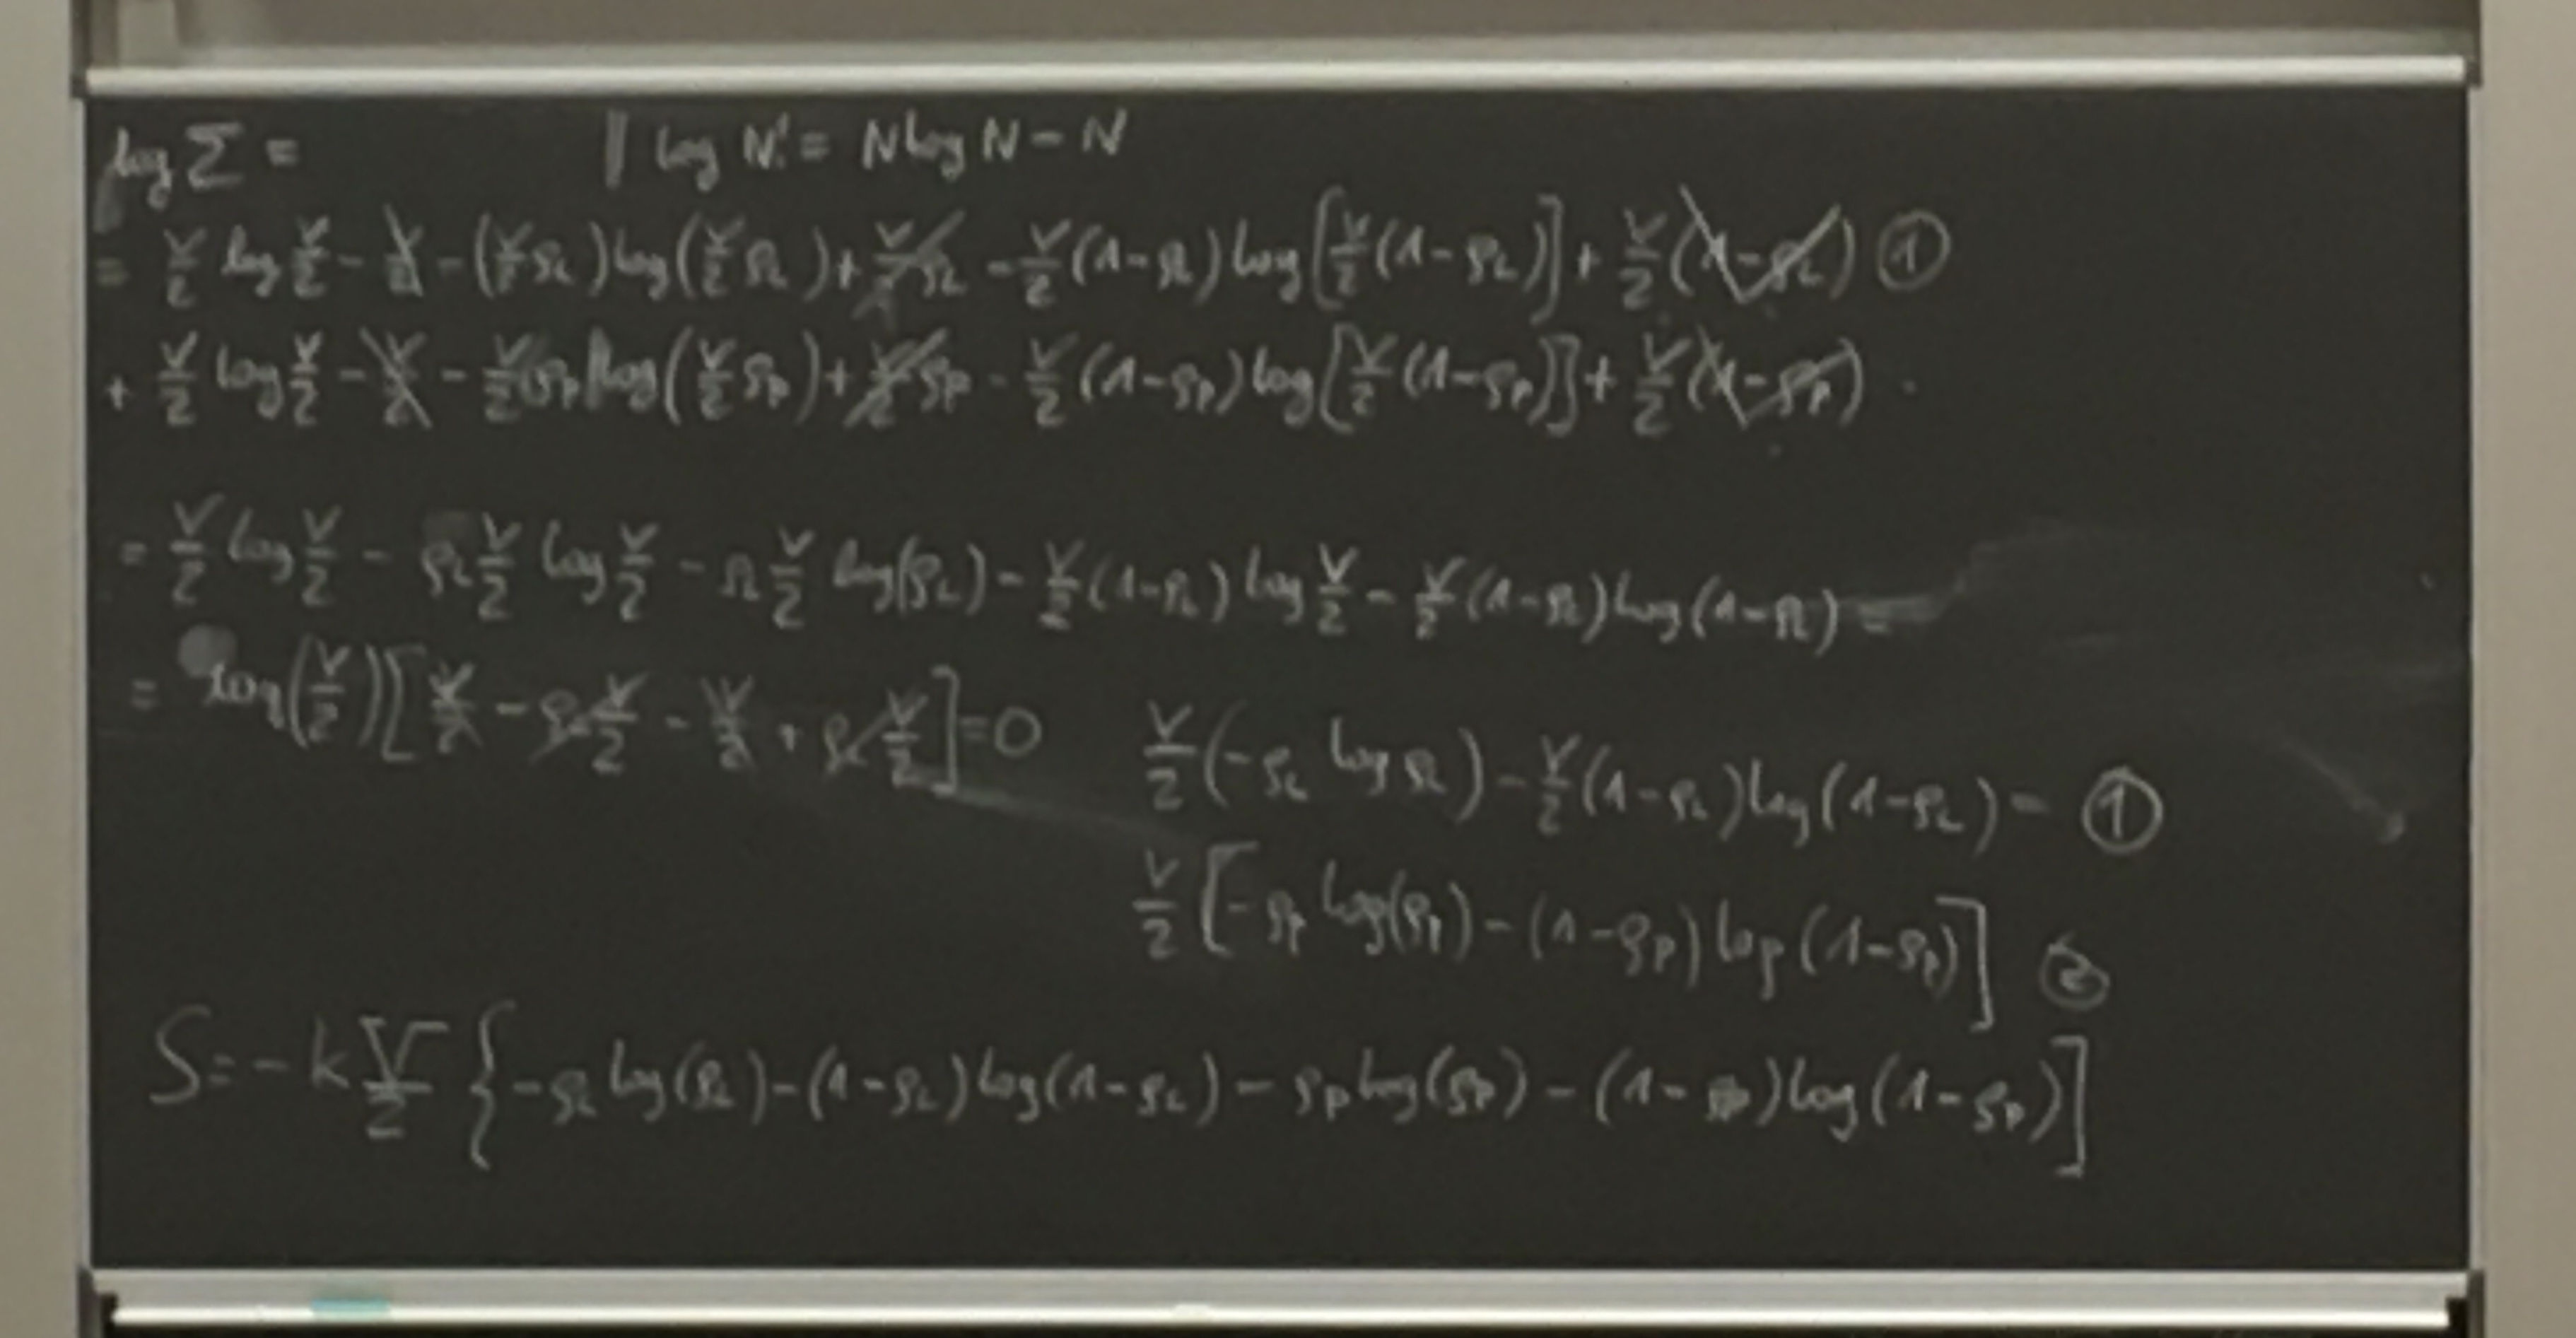 log Σ = | log N! = N log N - N
= V/2 log V/2 - V/2 - (V/2 ρL) log(V/2 ρL) + V/2 ρL - V/2 (1-ρL) log[V/2 (1-ρL)] + V/2 (1-ρL) ①
+ V/2 log V/2 - V/2 - V/2 ρP log(V/2 ρP) + V/2 ρP - V/2 (1-ρP) log[V/2 (1-ρP)] + V/2 (1-ρP)
= V/2 log V/2 - ρL V/2 log V/2 - ρL V/2 log(ρL) - V/2 (1-ρL) log V/2 - V/2 (1-ρL) log(1-ρL) =
= log(V/2) [V/2 - ρL V/2 - V/2 + ρL V/2] = 0
V/2 (-ρL log ρL) - V/2 (1-ρL) log(1-ρL) - ①
V/2 [-ρP log(ρP) - (1-ρP) log(1-ρP)] ②
S = -k V/2 {-ρL log(ρL) - (1-ρL) log(1-ρL) - ρP log(ρP) - (1-ρP) log(1-ρP)]